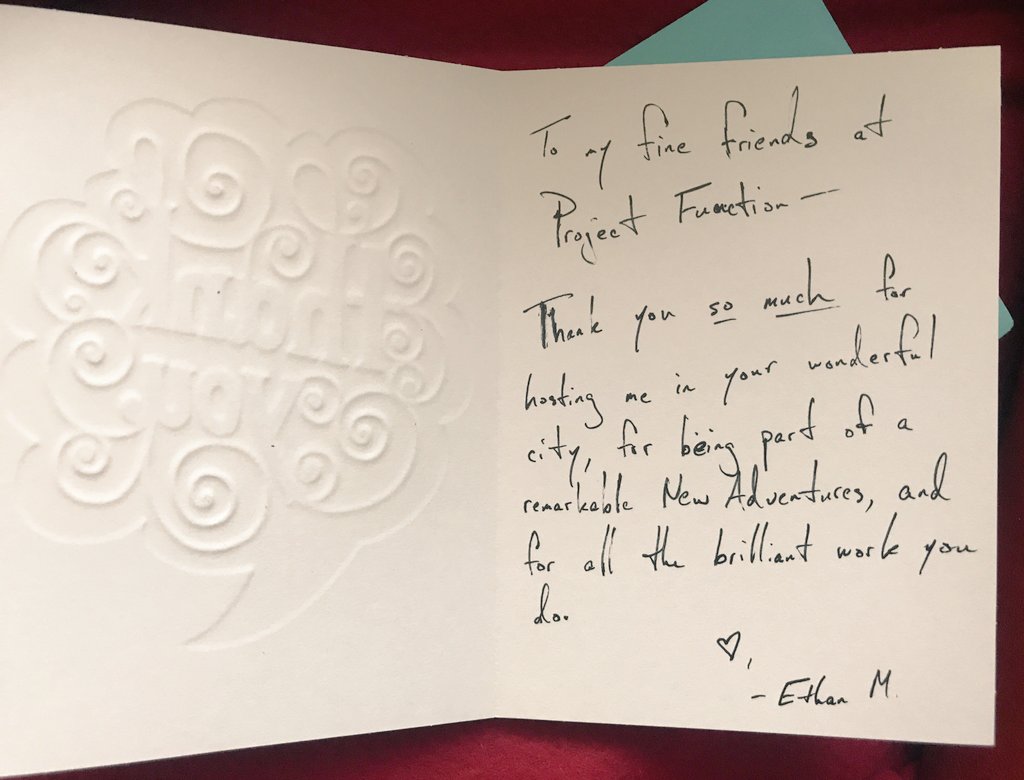 To my fine friends at
Project Function —
Thank you so much for
hosting me in your wonderful
city, for being part of a
remarkable New Adventures, and
for all the brilliant work you
do.
♡,
– Ethan M.